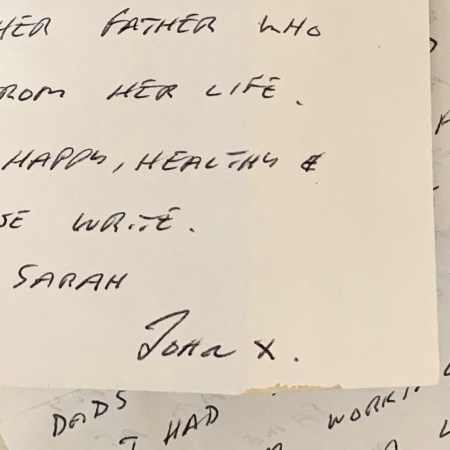 HER FATHER WHO
ROM HER LIFE.
HAPPY, HEALTHY &
SE WRITE.
SARAH
John X.
DADS
I HAD WORKIN